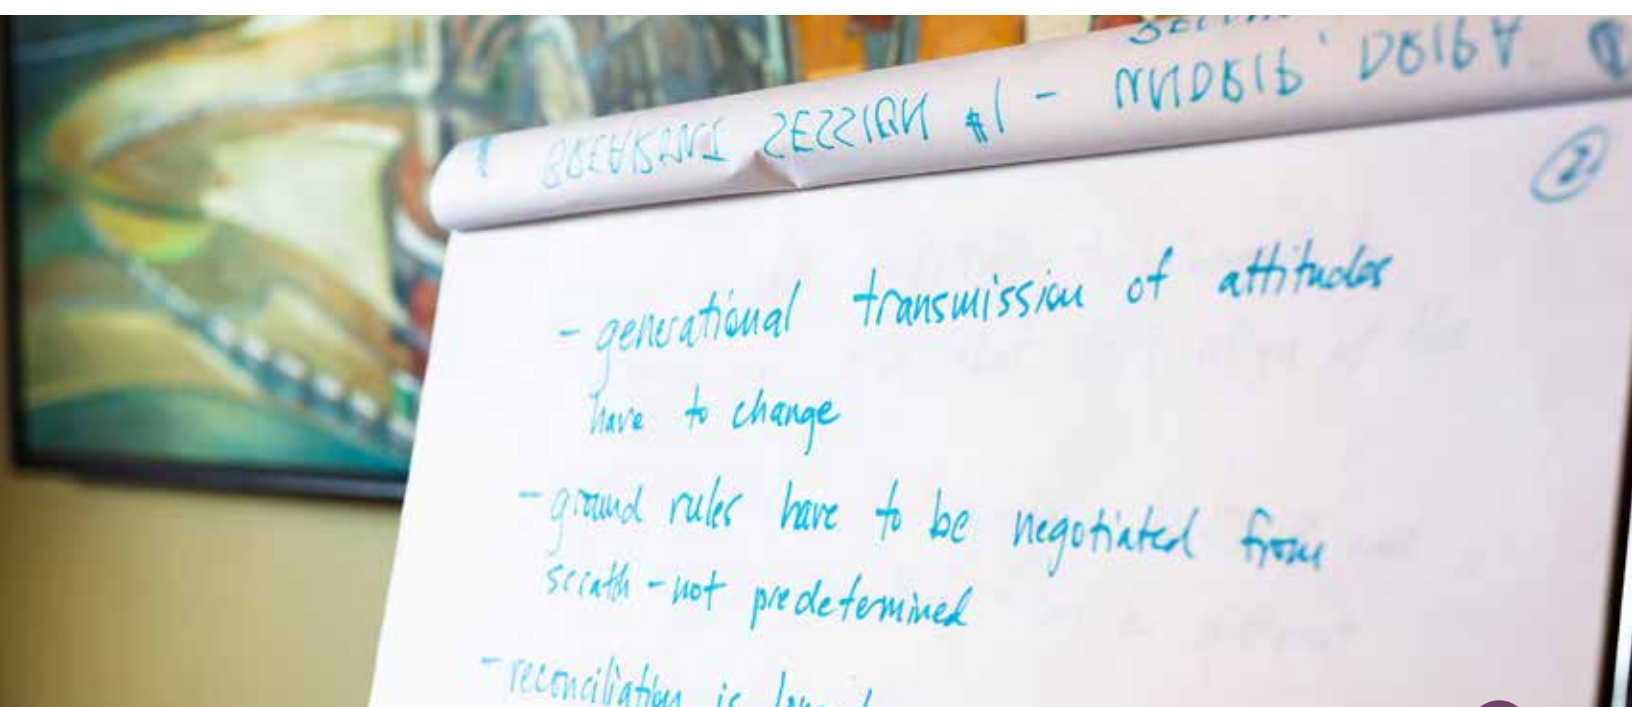 BREAKOUT SESSION #1 -
2
- generational transmission of attitudes
have to change
- ground rules have to be negotiated from
scrath - not predetermined
- reconciliation is